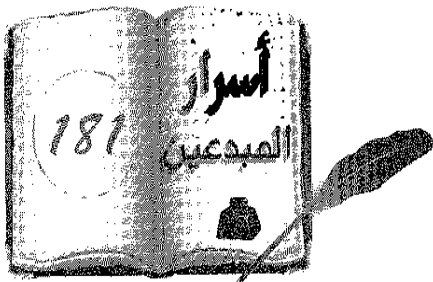 181
أسرار
المبدعين